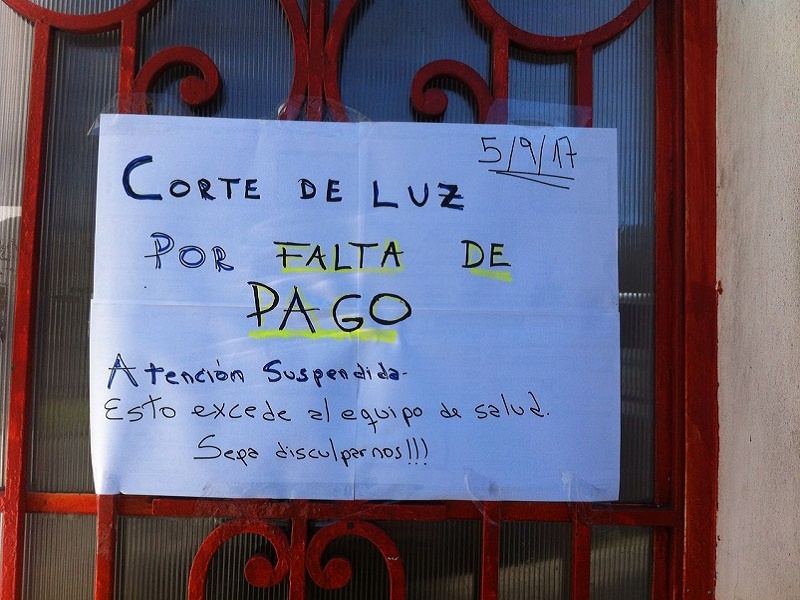 5/9/17
CORTE DE LUZ
POR FALTA DE
PAGO
Atención Suspendida.
Esto excede al equipo de salud.
Sepa disculparnos!!!